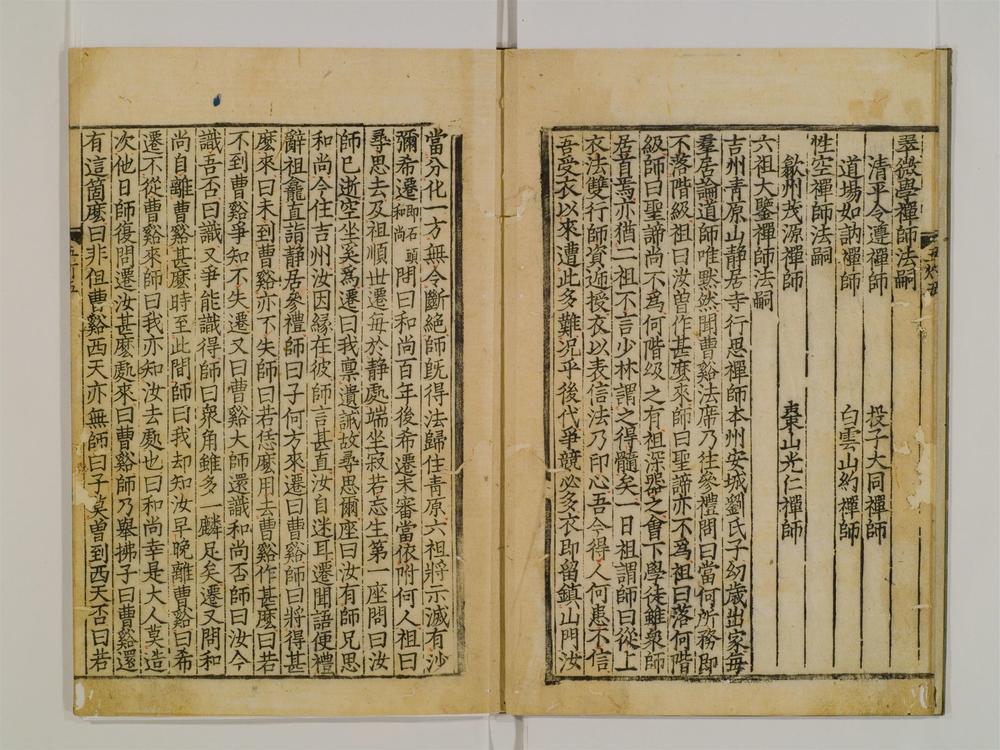 翠微學禪師法嗣
清平令遵禪師 投子大同禪師
道場如訥禪師 白雲山約禪師
性空禪師法嗣
歙州茂源禪師 棗山光仁禪師
六祖大鑒禪師法嗣
吉州青原山静居寺行思禪師本州安城劉氏子幼歲出家每
羣居論道師唯黙然聞曹谿法席乃往參禮問曰當何所務即
不落階級祖曰汝曾作甚麽來師曰聖諦亦不爲祖曰落何階
級師曰聖諦尚不爲何階級之有祖深器之會下學徒雖衆師
居首焉亦猶二祖不言少林謂之得髓矣一日祖謂師曰從上
衣法雙行師資遞授衣以表信法乃印心吾今得人何患不信
吾受衣以來遭此多難況乎後代爭競必多衣即留鎮山門汝
當分化一方無令斷絕師旣得法歸住青原六祖將示滅有沙
彌希遷即石頭和尚問曰和尚百年後希遷未審當依附何人祖曰
尋思去及祖順世遷每於静處端坐寂若忘生第一座問曰汝
師已逝空坐奚爲遷曰我稟遺誡故尋思爾座曰汝有師兄思
和尚今住吉州汝因緣在彼師言甚直汝自迷耳遷聞語便禮
辭祖龕直詣静居參禮師曰子何方來遷曰曹谿師曰將得甚
麽來曰未到曹谿亦不失師曰若恁麽用去曹谿作甚麽曰若
不到曹谿爭知不失遷又曰曹谿大師還識和尚否師曰汝今
識吾否曰識又爭能識得師曰衆角雖多一麟足矣遷又問和
尚自離曹谿甚麽時至此間師曰我却知汝早晚離曹谿曰希
遷不從曹谿來師曰我亦知汝去處也曰和尚幸是大人莫造
次他日師復問遷汝甚麽處來曰曹谿師乃舉拂子曰曹谿還
有這箇麽曰非但曹谿西天亦無師曰子莫曾到西天否曰若